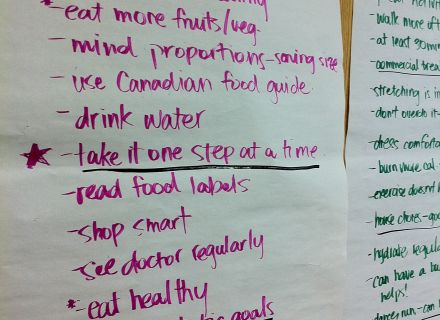 - eat more fruits/veg.
- mind proportions - serving size
- use Canadian food guide
- drink water
★ - take it one step at a time
- read food labels
- shop smart
- see doctor regularly
* - eat healthy
goals
- walk more
- at least 30 min
- commercial
stretching is
- don't overdo it
- dress
- burn more cal
exercise doesn't
house chores -
- hydrate
- can have a
helps!